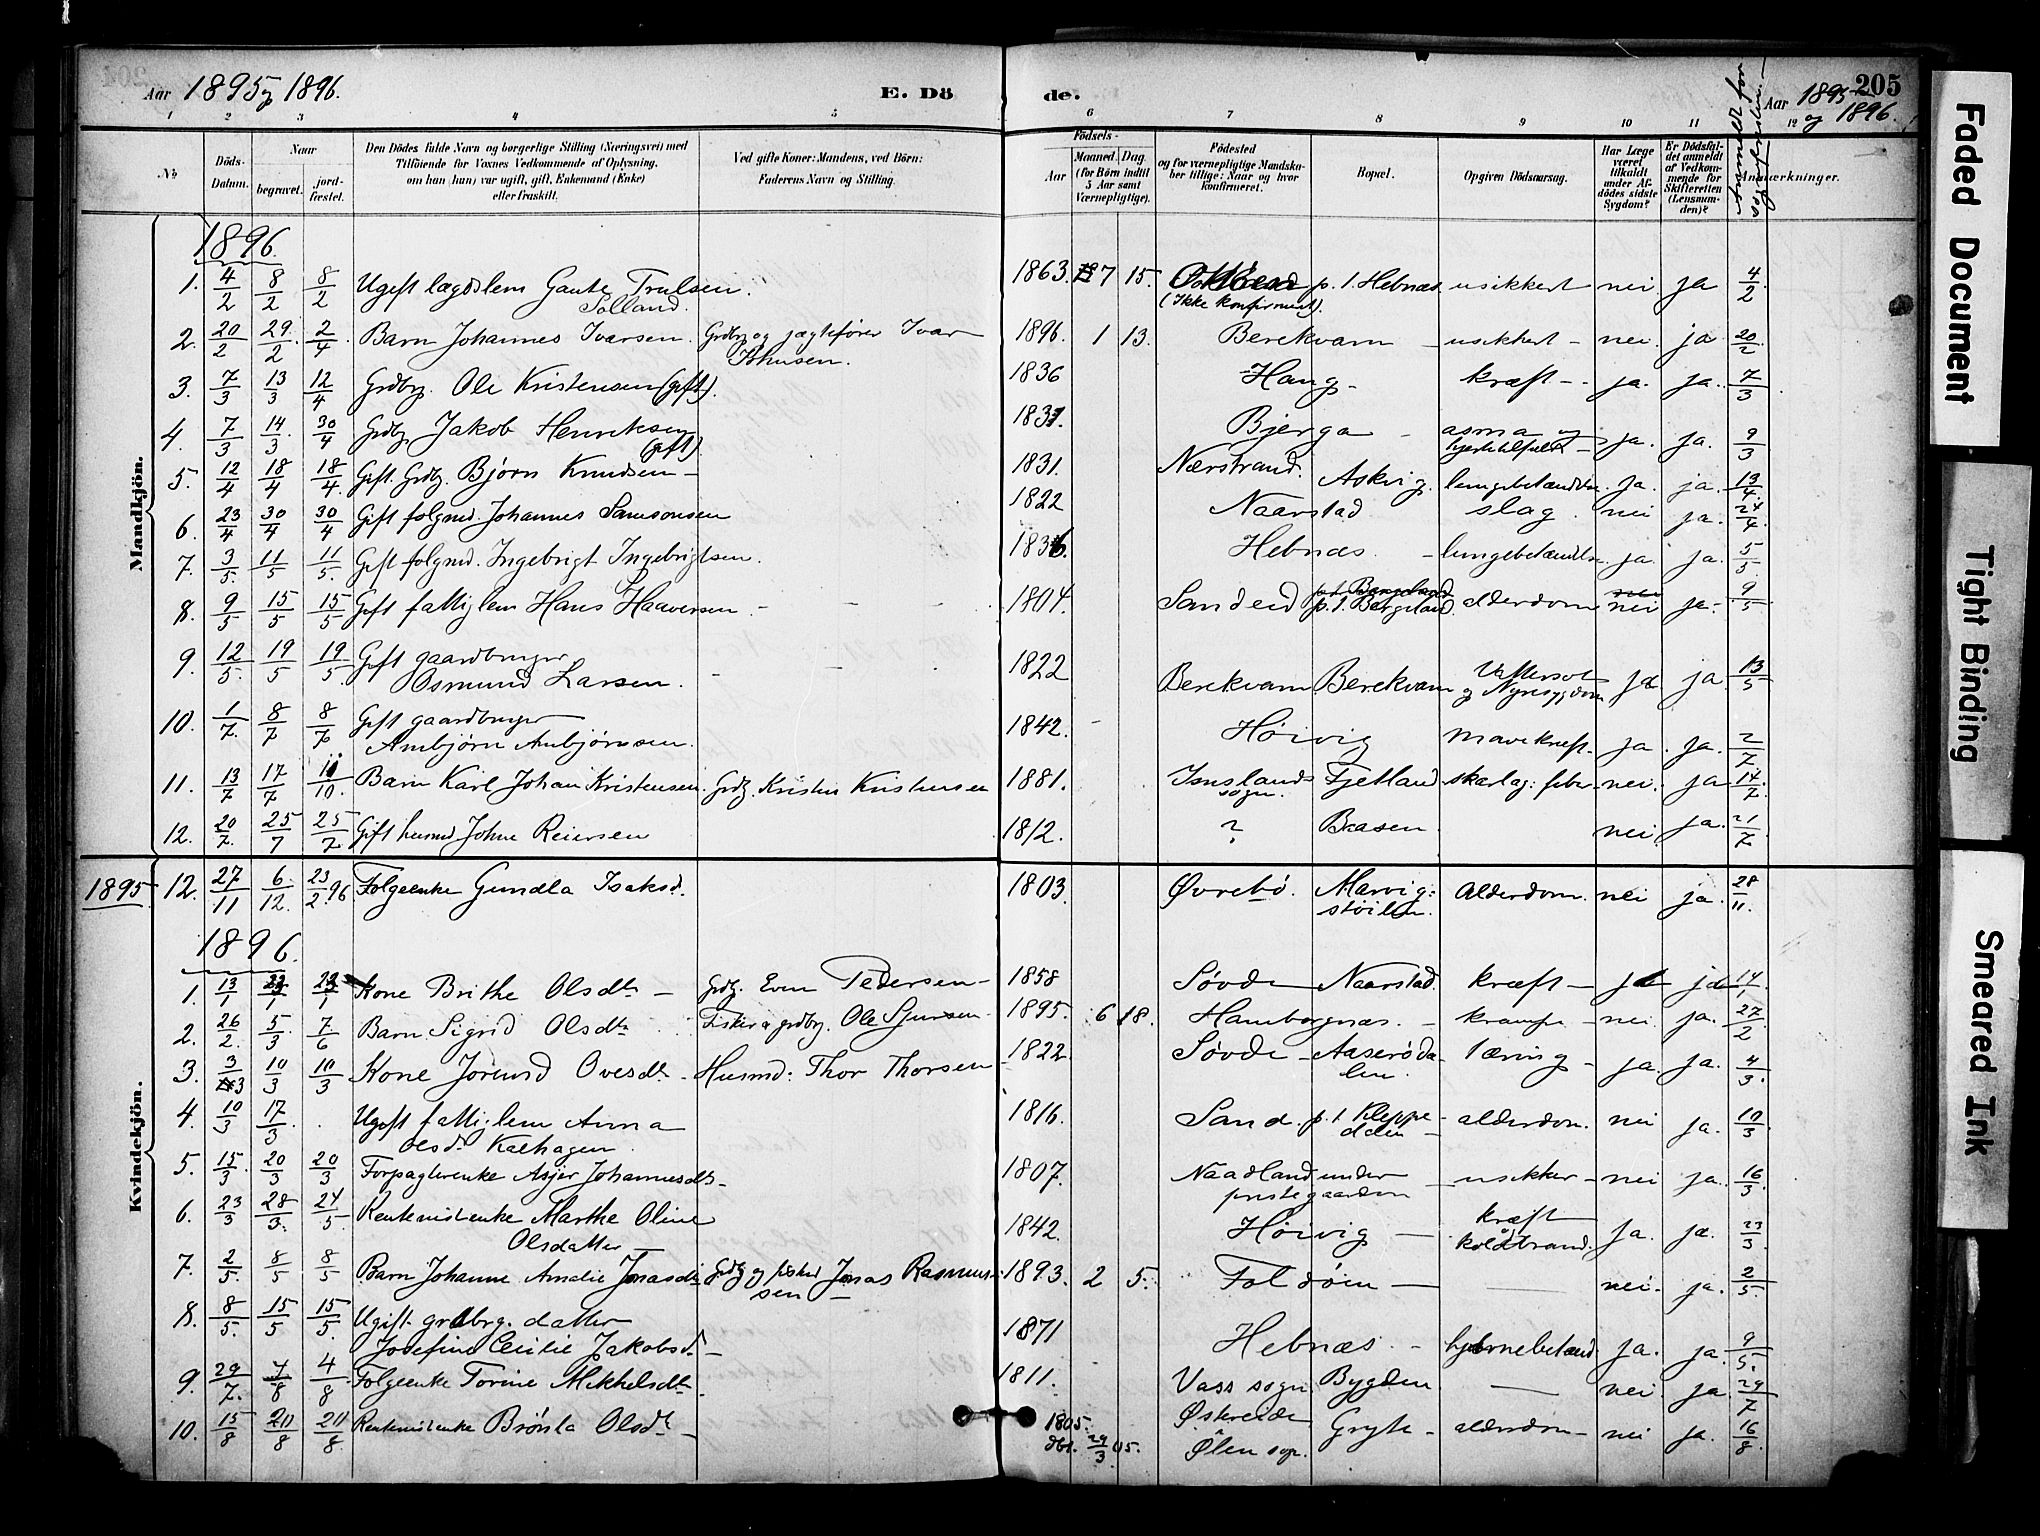 204
Aar 1895 og 1896.
E. Dö
de.
205
Aar 1895 og 1896.
1 2 3 4 5 6 7 8 9 10 11 12
No
Döds-Datum.
Naar
begravet.
jord-fæstet.
Den Dödes fulde Navn og borgerlige Stilling (Næringsvei) med
Tilföiende for Voxnes Vedkommende af Oplysning,
om han (hun) var ugift, gift, Enkemand (Enke)
eller fraskilt.
Ved gifte Koner: Mandens, ved Börn:
Faderens Navn og Stilling.
Födsels-
Aar
Maaned. Dag.
(for Börn indtil
5 Aar samt
Værnepligtige).
Födested
og for værnepligtige Mandska-
ber tillige: Naar og hvor
konfirmeret.
Bopæl.
Opgiven Dödsaarsag.
Har Læge
været
tilkaldt
under Af-
dödes sidste
Sygdom?
Er Dödsfal-
det anmeldt
af Vedkom-
mende for
Skifteretten
(Lensman-
den)?
Anmærkninger.
Mandkjön.
1896.
1. 4/2 8/2 8/2 Ugift lægdslem Gaute Trulsen 1863. 7 15. p. t. Hebnæs usikkert nei ja 4/2
Solland. (Ikke konfirmert).
2. 20/2 29/2 2/4 Barn Johannes Ivarsen. Grdbr. og jægtefører Ivar 1896. 1 13. Berekvam – usikkert – nei. ja 20/2
Johnsen.
3. 7/3 13/3 12/4 Grdbr. Ole Kristensen (gift). 1836 Haug – kræft – ja. ja. 7/3
4. 7/3 14/3 30/4 Grdbr. Jakob Henriksen 1837. Bjerga – asma og ja. ja. 9/3
(gift).
5. 12/4 18/4 18/4 Gift. Grdbr. Bjørn Knudsen – 1831. Nærstrand. Askvig. lungebetændelse ja. ja. 13/4
6. 23/4 30/4 30/4 Gift folgmd. Johannes Samsonsen 1822 Naarstad slag. nei ja. 24/4
7. 3/5. 11/5 11/5. Gift folgmd. Ingebrigt Ingebrigtsen. 1836. Hebnæs. – lungebetændelse ja. ja. 5/5
8. 9/5 15/5 15/5 Gift fattiglem Hans Haaversen – 1804. Sandeid p. t. Bergeland alderdom nei ja. 9/5
9. 12/5. 19/5 19/5 Gift gaardbruger 1822 Berekvam Berekvam Vattersot ja ja 13/5
Osmund Larsen. og Nyresygdom
10. 1/7. 8/7 8/7 Gift gaardbruger 1842. Høivig mavekræft. ja. ja. 2/7
Anbjørn Anbjørnsen.
11. 13/7 17/7 11/10. Barn Karl Johan Kristensen. Grdbr. Kristen Kristensen 1881. Imslands Fjetland skarlag. feber nei. ja 14/7
sogn.
12. 20/7. 25/7 25/7 Gift husmd Johne Reiersen 1812. ? Braasen nei ja. 21/7
1895 12. 27/11 6./12. 23/2 96 Folgeenke Gundla Isaksd. 1803. Øvrebö. Marvig- Alderdom. nei ja. 28/11.
støilen.
Kvindekjön.
1896.
1. 13/1 23/1 23/1 Kone Brithe Olsdtr – Grdbr. Even Pedersen – 1858 Søvde Naarstad. kræft – ja ja 14/1
2. 26/2. 5/3 7/6 Barn Sigrid Olsdtr Fisker og grdbr. Ole Sjursen – 1895. 6 18. Hamborgnæs. – krampe – nei ja. 27/2
3. 3/3 10/3 10/3 Kone Jorund Ovesdtr – Husmd: Thor Thorsen 1822 Søvde – Aaserøda- tæring – ja. ja. 4/3.
len.
4. 10/3 17/3 Ugift fattiglem Anna 1816. Sand. p. t. Kleppe- alderdom. nei ja. 10/3
Olsdr Kalhagen dalen –
5. 15/3. 20/3 20/3 Forpagterenke Asjer Johannesdtr. 1807. Naadland under – usikker – nei ja. 16/3
prestegaarden
6. 23/3 28/3. 24/5. Rentenistenke Marthe Oline 1842. Høivig – kræft ja. ja. 23/3
Olsdatter – koldbrand.
7. 2/5. 8/5 8/5 Barn Johanne Amalie Jonasdtr Grdbr. og fisker Jonas Rasmus- 1893. 2 5. Foldøen – nei. ja. 2/5.
sen –
8. 8/5. 15/5 15/5. Ugift grdbrg. datter 1871 Hebnæs. – hjernebetænd. ja. ja. 9/5.
Josefine Cecilie Jakobsd. –
9. 29/7. 4/8 4/8 Folgeenke Torine Mikkelsdtr. 1811. Vass sogn Bygden nei ja 29/7
10. 15/8 20/8 20/8 Rentenistenke Brönla Olsdtr – 1805. Østereide Gryte – alderdom – nei ja. 16/8.
dbt. 29/3 05. Ølen sogn.
Faded Document
Tight Binding
Smeared Ink